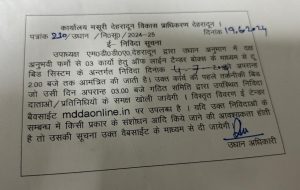 कार्यालय मसूरी देहरादून विकास प्राधिकरण देहरादून।
पत्रांक 220/उद्यान / नि०सू० / 2024-25 दिनांक 19.6.2024
ई- निविदा सूचना
उपाध्यक्ष एम०डी०डी०ए० देहरादून द्वारा उद्यान अनुभाग में दक्ष
अनुभवी फर्मों से 03 कार्यो हेतु ऑन लाईन टैण्डर बोक्स के माध्यम से दू
बिड सिस्टम के अन्तर्गत निविदा दिनांक 4-7-2024 अपरान्ह
2.00 बजे तक आमन्त्रित की जाती है। उक्त कार्य की पहले तकनीकी बिड
जो उसी दिन अपरान्ह 03.00 बजे गठित समिति द्वारा उपस्थित निविदा
दाताओं / प्रतिनिधियों के समक्ष खोली जायेगी। विस्तृत विवरण ई टैण्डर
वेबसाईट mddaonline.in पर उपलब्ध है। यदि उक्त निविदाओं के
सम्बन्ध में किसी प्रकार के संशोधन आदि किये जाने की आवश्यकता होती
है तो उसकी सूचना उक्त वेबसाईट के माध्यम से दी जायेगी।
उद्यान अधिकारी